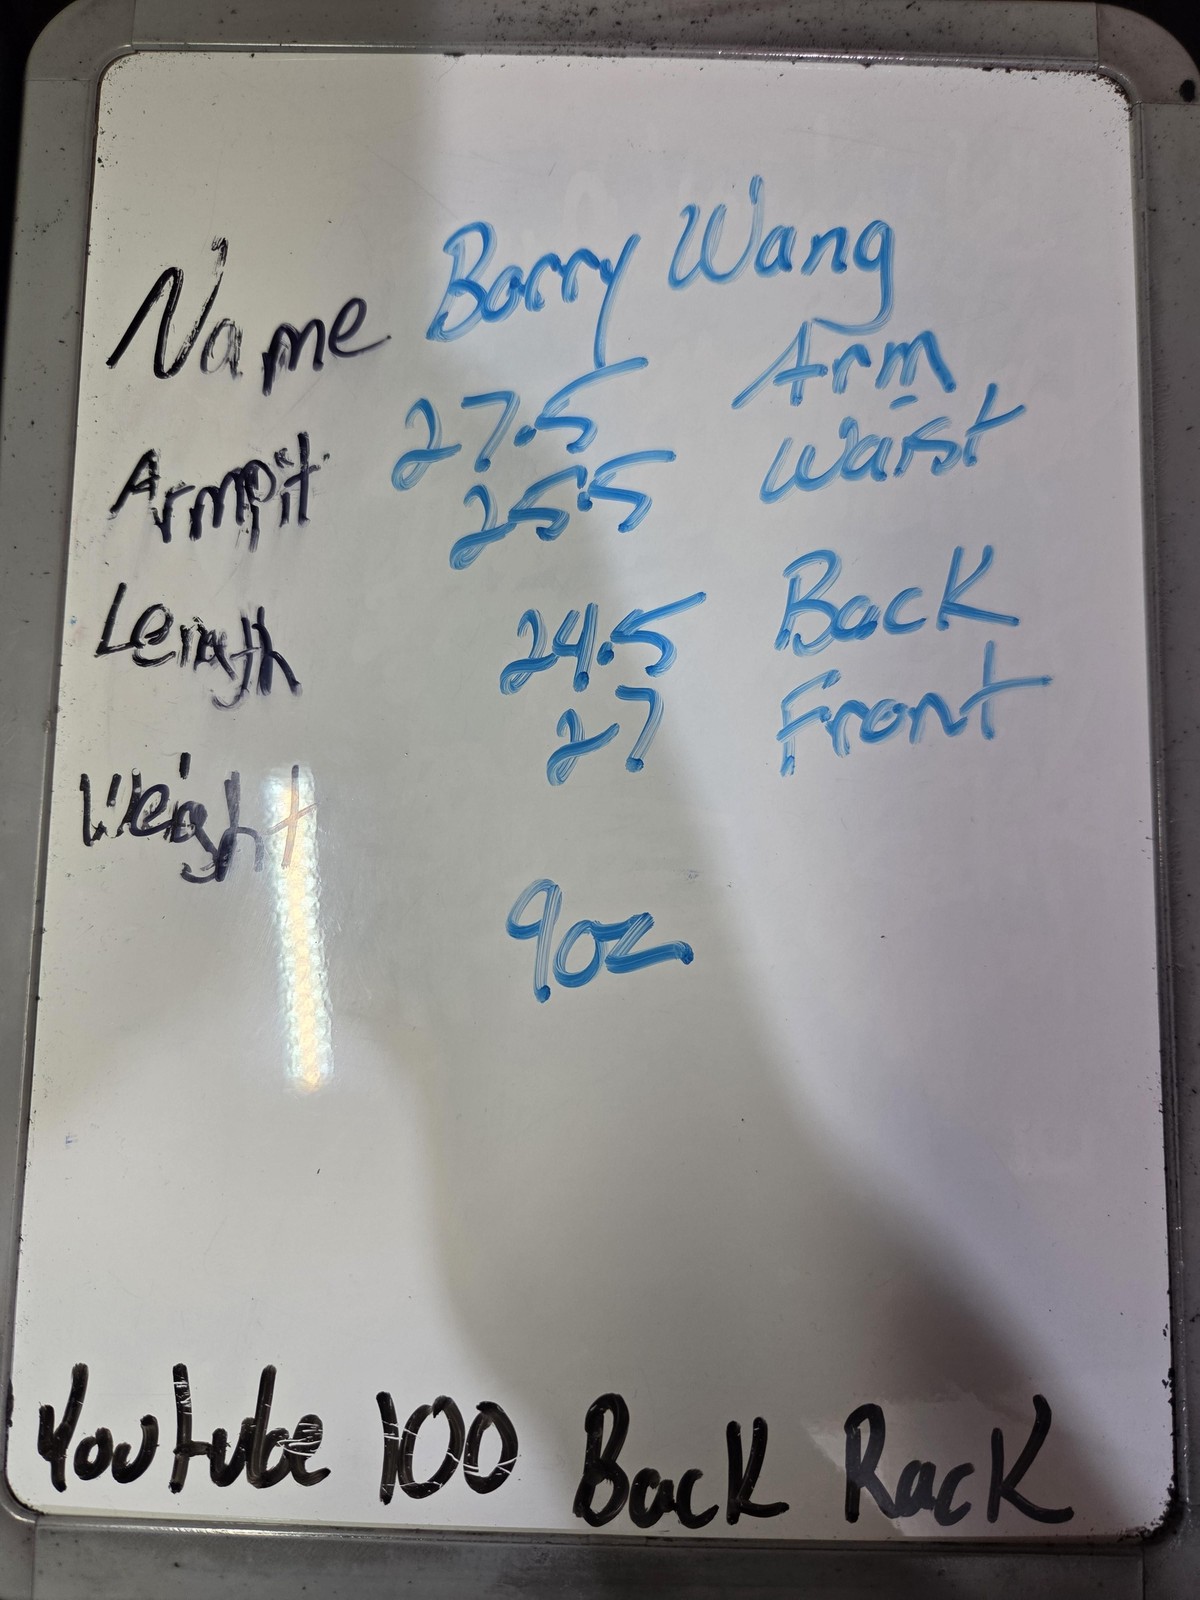 Name Barry Wang
Armpit 27.5 Arm
25.5 Waist
Length 24.5 Back
27 Front
Weight
9oz
Youtube 100 Back Rack